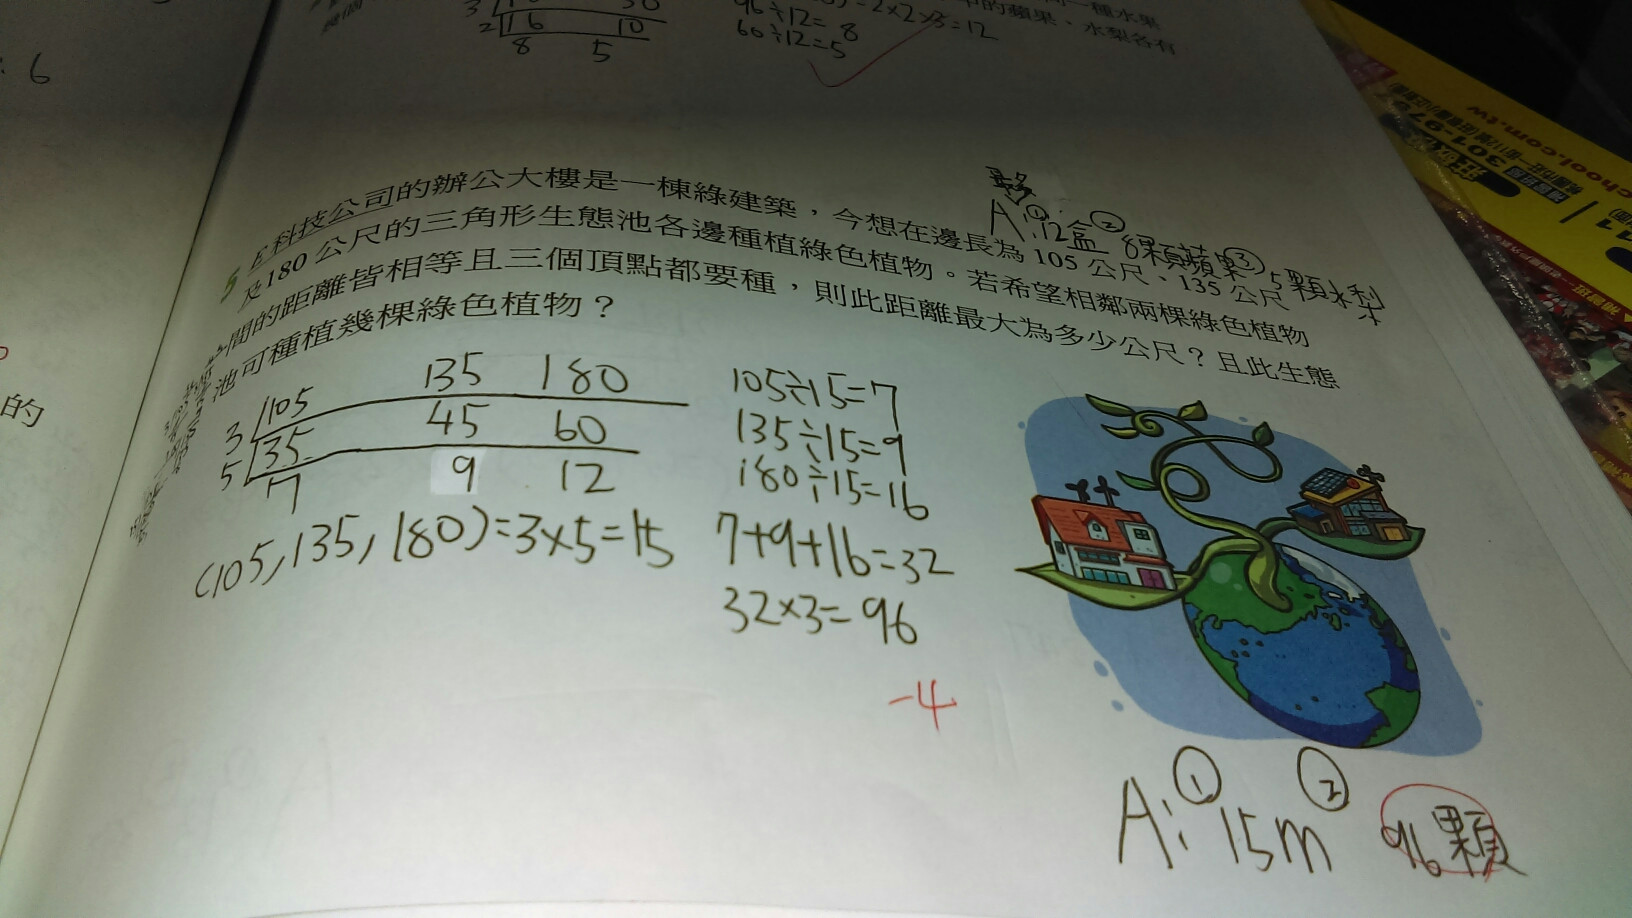 : 6
的
16 10
8 5
96÷12=8
60÷12=5
2×2×3=12
水梨各有
A:①12盒 ②8顆蘋果③5顆水梨
5 E科技公司的辦公大樓是一棟綠建築，今想在邊長為105公尺、135公尺
及180公尺的三角形生態池各邊種植綠色植物。若希望相鄰兩棵綠色植物
間的距離皆相等且三個頂點都要種，則此距離最大為多少公尺？且此生態
池可種植幾棵綠色植物？
3 105 135 180
5 35 45 60
7 9 12
(105,135,180)=3×5=15
105÷15=7
135÷15=9
180÷15=16
7+9+16=32
32×3=96
-4
A:①15m ②96顆
301-97
chool.com.tw